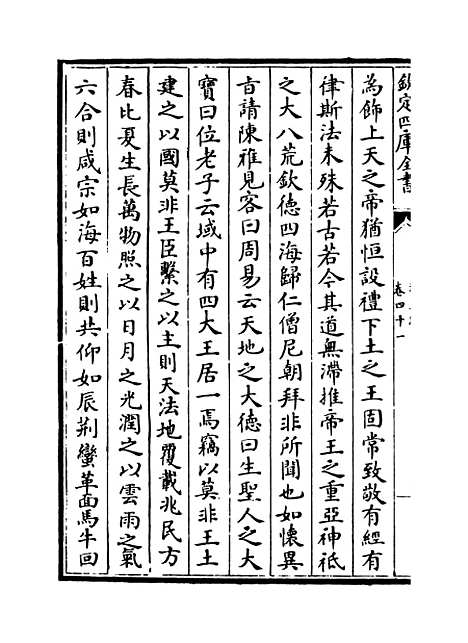 欽定四庫全書
卷四十一
為飾上天之帝猶恒設禮下土之王固常致敬有經有
律斯法未殊若古若今其道無滯推帝王之重亞神祇
之大八荒欽德四海歸仁僧尼朝拜非所聞也如懷異
㫖請陳雅見客曰周易云天地之大德曰生聖人之大
寳曰位老子云域中有四大王居一焉竊以莫非王土
建之以國莫非王臣繫之以主則天法地覆載兆民方
春比夏生長萬物照之以日月之光潤之以雲雨之氣
六合則咸宗如海百姓則共仰如辰荆蠻革面馬牛回